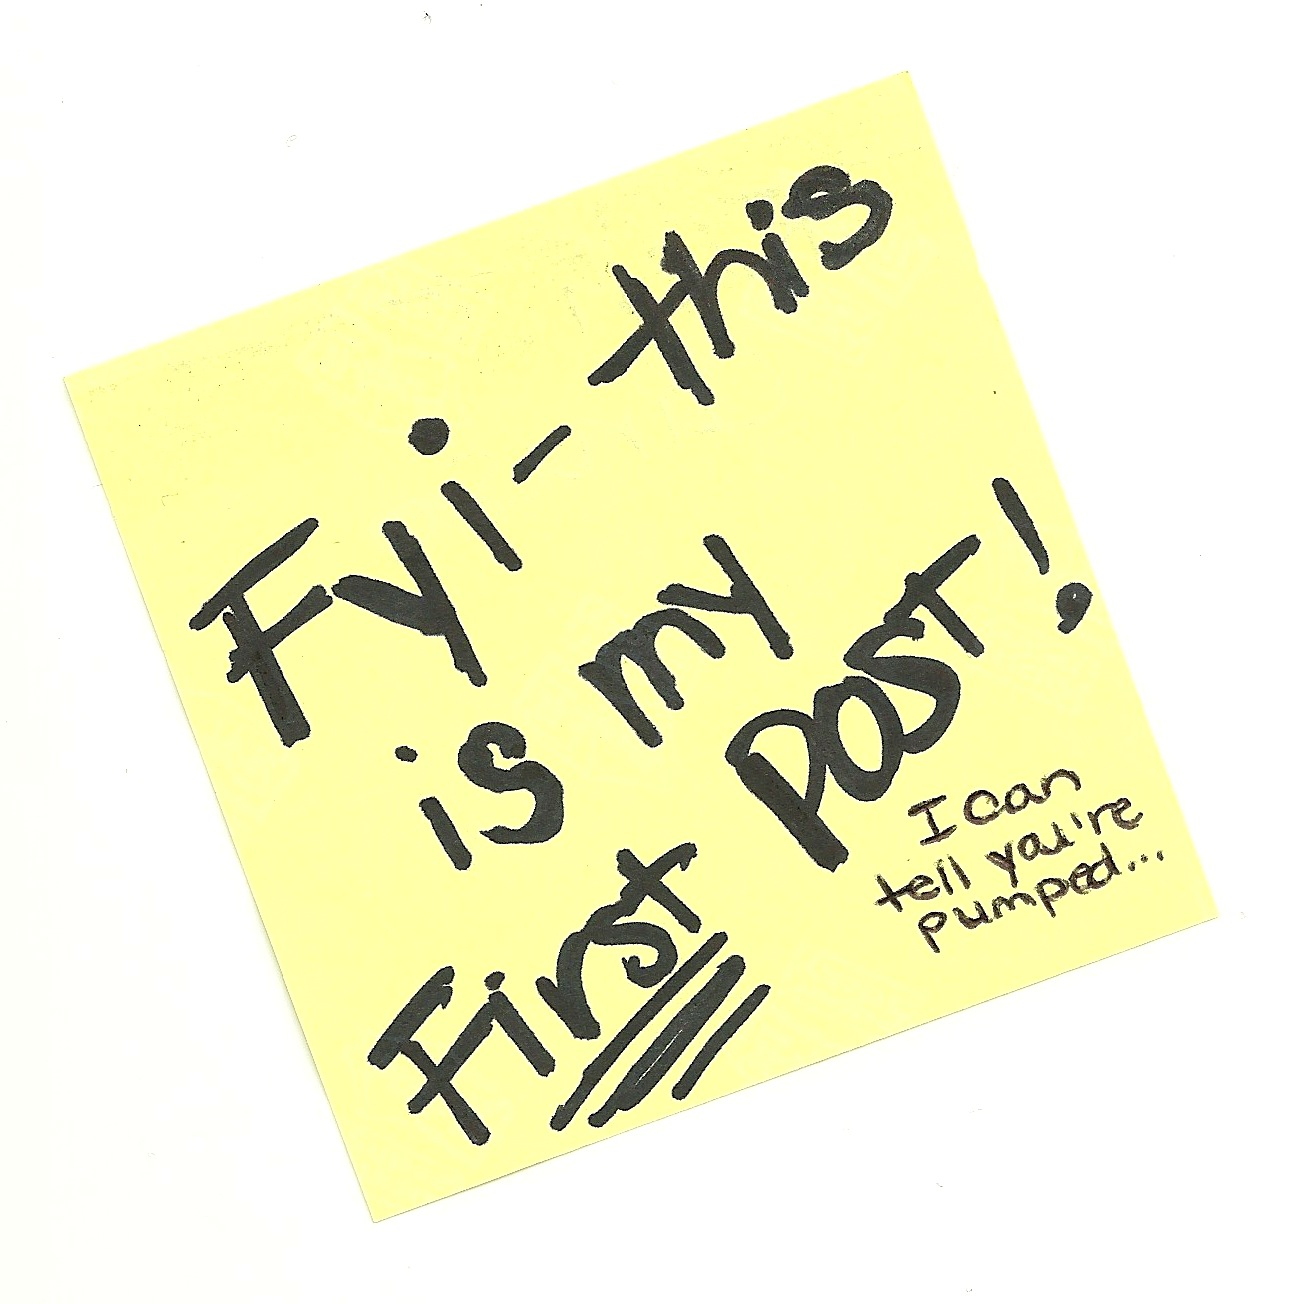 Fyi - this
is my
First POST!
I can
tell you're
pumped...